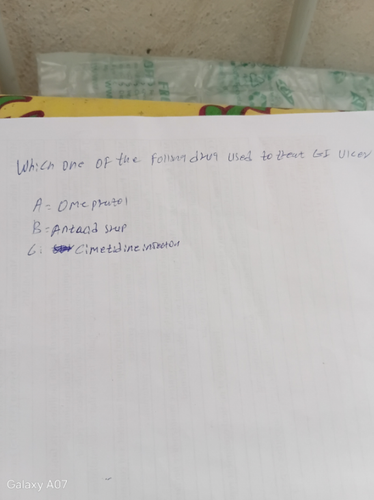 Which one of the follown drug used to treat GI ulcer
A = Omeprazol
B = Antacid srup
C: Cimetidine
Galaxy A07